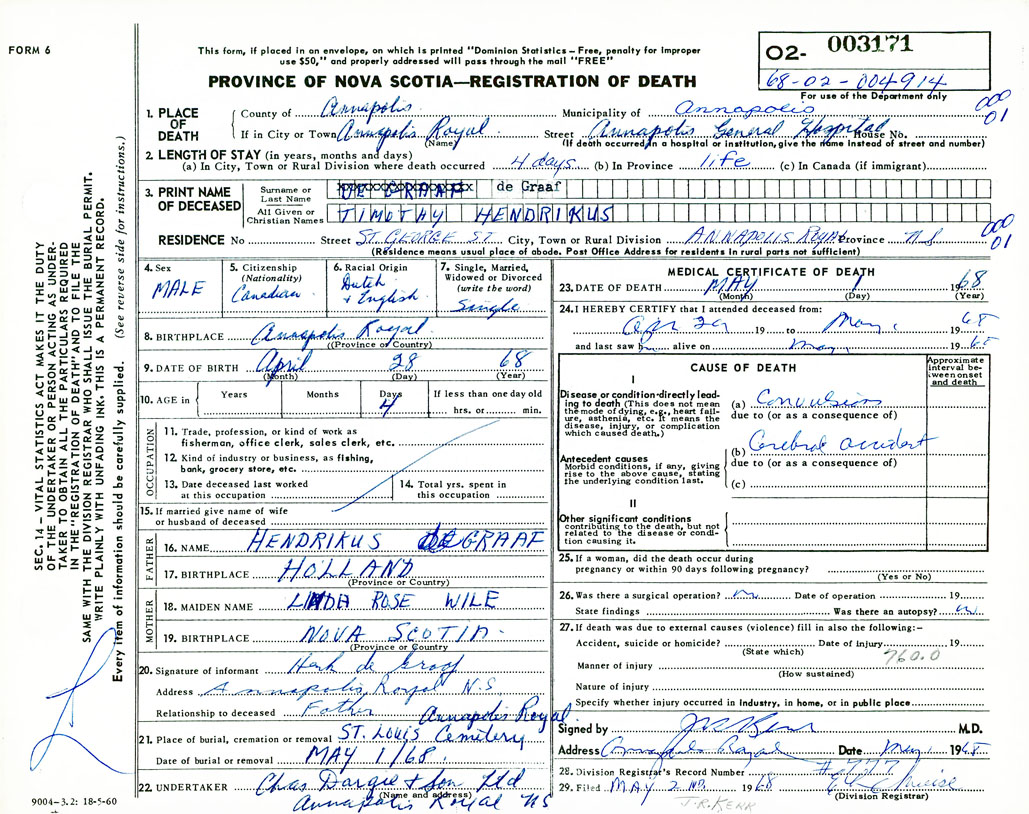 FORM 6
This form, if placed in an envelope, on which is printed "Dominion Statistics – Free, penalty for improper
use $50," and properly addressed will pass through the mail "FREE"
PROVINCE OF NOVA SCOTIA—REGISTRATION OF DEATH
02- 003171
68-02-004914
For use of the Department only
000
01
1. PLACE OF DEATH
County of Annapolis Municipality of Annapolis
If in City or Town Annapolis Royal Street Annapolis General Hospital House No.
(Name) (If death occurred in a hospital or institution, give the name instead of street and number)
2. LENGTH OF STAY (in years, months and days)
(a) In City, Town or Rural Division where death occurred 4 days (b) In Province life (c) In Canada (if immigrant)
3. PRINT NAME OF DECEASED
Surname or Last Name DE GRAAF de Graaf
All Given or Christian Names TIMOTHY HENDRIKUS
000
01
RESIDENCE No Street ST. GEORGE ST. City, Town or Rural Division ANNAPOLIS ROYAL Province N S
(Residence means usual place of abode. Post Office Address for residents in rural parts not sufficient)
4. Sex
MALE
5. Citizenship
(Nationality)
Canadian
6. Racial Origin
Dutch
+ English
7. Single, Married,
Widowed or Divorced
(write the word)
Single
8. BIRTHPLACE Annapolis Royal
(Province or Country)
9. DATE OF BIRTH April 28 68
(Month) (Day) (Year)
10. AGE in Years Months Days If less than one day old
4 hrs. or min.
OCCUPATION
11. Trade, profession, or kind of work as
fisherman, office clerk, sales clerk, etc.
12. Kind of industry or business, as fishing,
bank, grocery store, etc.
13. Date deceased last worked
at this occupation
14. Total yrs. spent in
this occupation
15. If married give name of wife
or husband of deceased
FATHER
16. NAME HENDRIKUS DE GRAAF
17. BIRTHPLACE HOLLAND
(Province or Country)
MOTHER
18. MAIDEN NAME LINDA ROSE WILE
19. BIRTHPLACE NOVA SCOTIA
(Province or Country
20. Signature of informant Henk de Graaf
Address Annapolis Royal N.S
Relationship to deceased Father
Annapolis Royal
21. Place of burial, cremation or removal ST. LOUIS Cemetery
Date of burial or removal MAY 1/68
22. UNDERTAKER Chas Dargie + Son Ltd
(Name and address)
Annapolis Royal NS
MEDICAL CERTIFICATE OF DEATH
23. DATE OF DEATH MAY 1 1968
(Month) (Day) (Year)
24. I HEREBY CERTIFY that I attended deceased from:
Apr 29 19 to May 1 68
and last saw h alive on May 1 1968
CAUSE OF DEATH
Approximate
interval be-
tween onset
and death
I
Disease or condition directly lead-
ing to death (This does not mean
the mode of dying, e.g., heart fail-
ure, asthenia, etc. It means the
disease, injury, or complication
which caused death.)
(a) Convulsions
due to (or as a consequence of)
Antecedent causes
Morbid conditions, if any, giving
rise to the above cause, stating
the underlying condition last.
(b) Cerebral accident
due to (or as a consequence of)
(c)
II
Other significant conditions
contributing to the death, but not
related to the disease or condi-
tion causing it.
25. If a woman, did the death occur during
pregnancy or within 90 days following pregnancy?
(Yes or No)
26. Was there a surgical operation? no Date of operation 19
State findings Was there an autopsy? no
27. If death was due to external causes (violence) fill in also the following:–
Accident, suicide or homicide? Date of injury 19
(State which) 760.0
Manner of injury
(How sustained)
Nature of injury
Specify whether injury occurred in industry, in home, or in public place
Signed by M.D.
Address Annapolis Royal Date May 1 1968
28. Division Registrar's Record Number #777
29. Filed MAY 2 ND. 1968
(Division Registrar)
J.R. KERR
SEC. 14 – VITAL STATISTICS ACT MAKES IT THE DUTY
OF THE UNDERTAKER OR PERSON ACTING AS UNDER-
TAKER TO OBTAIN ALL THE PARTICULARS REQUIRED
IN THE "REGISTRATION OF DEATH" AND TO FILE THE
SAME WITH THE DIVISION REGISTRAR WHO SHALL ISSUE THE BURIAL PERMIT.
WRITE PLAINLY WITH UNFADING INK. THIS IS A PERMANENT RECORD.
Every item of information should be carefully supplied. (See reverse side for instructions.)
9004–3.2: 18-5-60